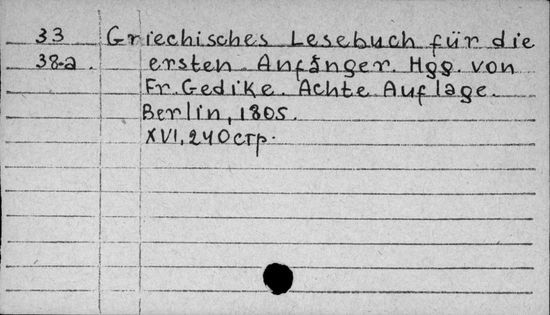 33 Griechisches Lesebuch für die
38-a ersten Anfänger. Hgg. von
Fr. Gedike. Achte Auflage.
Berlin, 1805.
XVI, 240 стр.